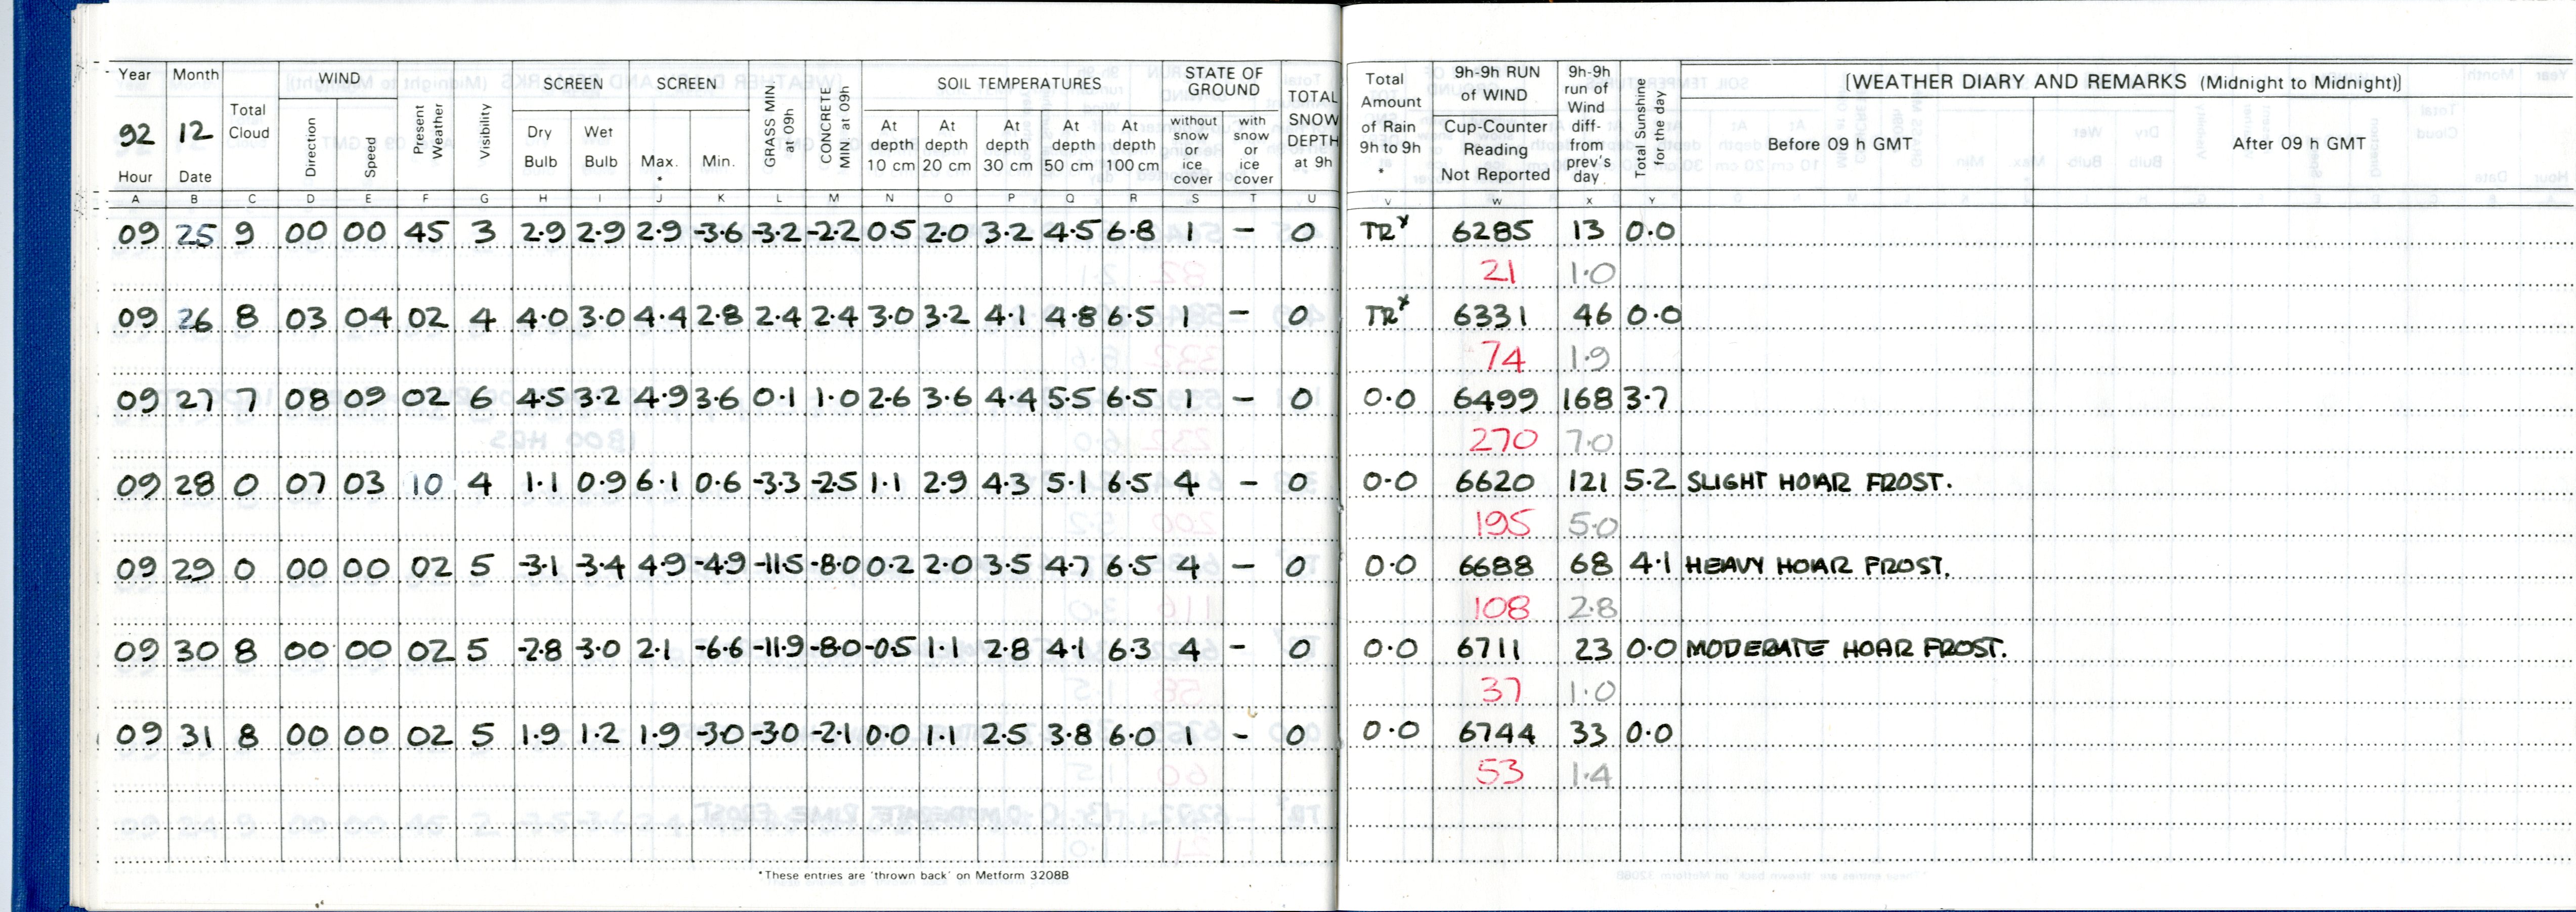 Year Month WIND SCREEN SCREEN SOIL TEMPERATURES STATE OF GROUND TOTAL SNOW DEPTH at 9h Total Amount of Rain 9h to 9h * 9h-9h RUN of WIND 9h-9h run of Wind diff- from prev's day. Total Sunshine for the day [WEATHER DIARY AND REMARKS (Midnight to Midnight)]
92 12 Total Cloud Direction Speed Present Weather Visibility Dry Bulb Wet Bulb Max. * Min. GRASS MIN. at 09h CONCRETE MIN. at 09h At depth 10 cm At depth 20 cm At depth 30 cm At depth 50 cm At depth 100 cm without snow or ice cover with snow or ice cover Cup-Counter Reading Not Reported Before 09 h GMT After 09 h GMT
Hour Date
A B C D E F G H I J K L M N O P Q R S T U V W X Y
09 25 9 00 00 45 3 2.9 2.9 2.9 -3.6 -3.2 -2.2 0.5 2.0 3.2 4.5 6.8 1 – 0 TR* 6285 13 0.0
21 1.0
09 26 8 03 04 02 4 4.0 3.0 4.4 2.8 2.4 2.4 3.0 3.2 4.1 4.8 6.5 1 – 0 TR* 6331 46 0.0
74 1.9
09 27 7 08 09 02 6 4.5 3.2 4.9 3.6 0.1 1.0 2.6 3.6 4.4 5.5 6.5 1 – 0 0.0 6499 168 3.7
270 7.0
09 28 0 07 03 10 4 1.1 0.9 6.1 0.6 -3.3 -2.5 1.1 2.9 4.3 5.1 6.5 4 – 0 0.0 6620 121 5.2 SLIGHT HOAR FROST.
195 5.0
09 29 0 00 00 02 5 -3.1 -3.4 4.9 -4.9 -11.5 -8.0 0.2 2.0 3.5 4.7 6.5 4 – 0 0.0 6688 68 4.1 HEAVY HOAR FROST.
108 2.8
09 30 8 00 00 02 5 -2.8 -3.0 2.1 -6.6 -11.9 -8.0 -0.5 1.1 2.8 4.1 6.3 4 – 0 0.0 6711 23 0.0 MODERATE HOAR FROST.
37 1.0
09 31 8 00 00 02 5 1.9 1.2 1.9 -3.0 -3.0 -2.1 0.0 1.1 2.5 3.8 6.0 1 – 0 0.0 6744 33 0.0
53 1.4
*These entries are 'thrown back' on Metform 3208B